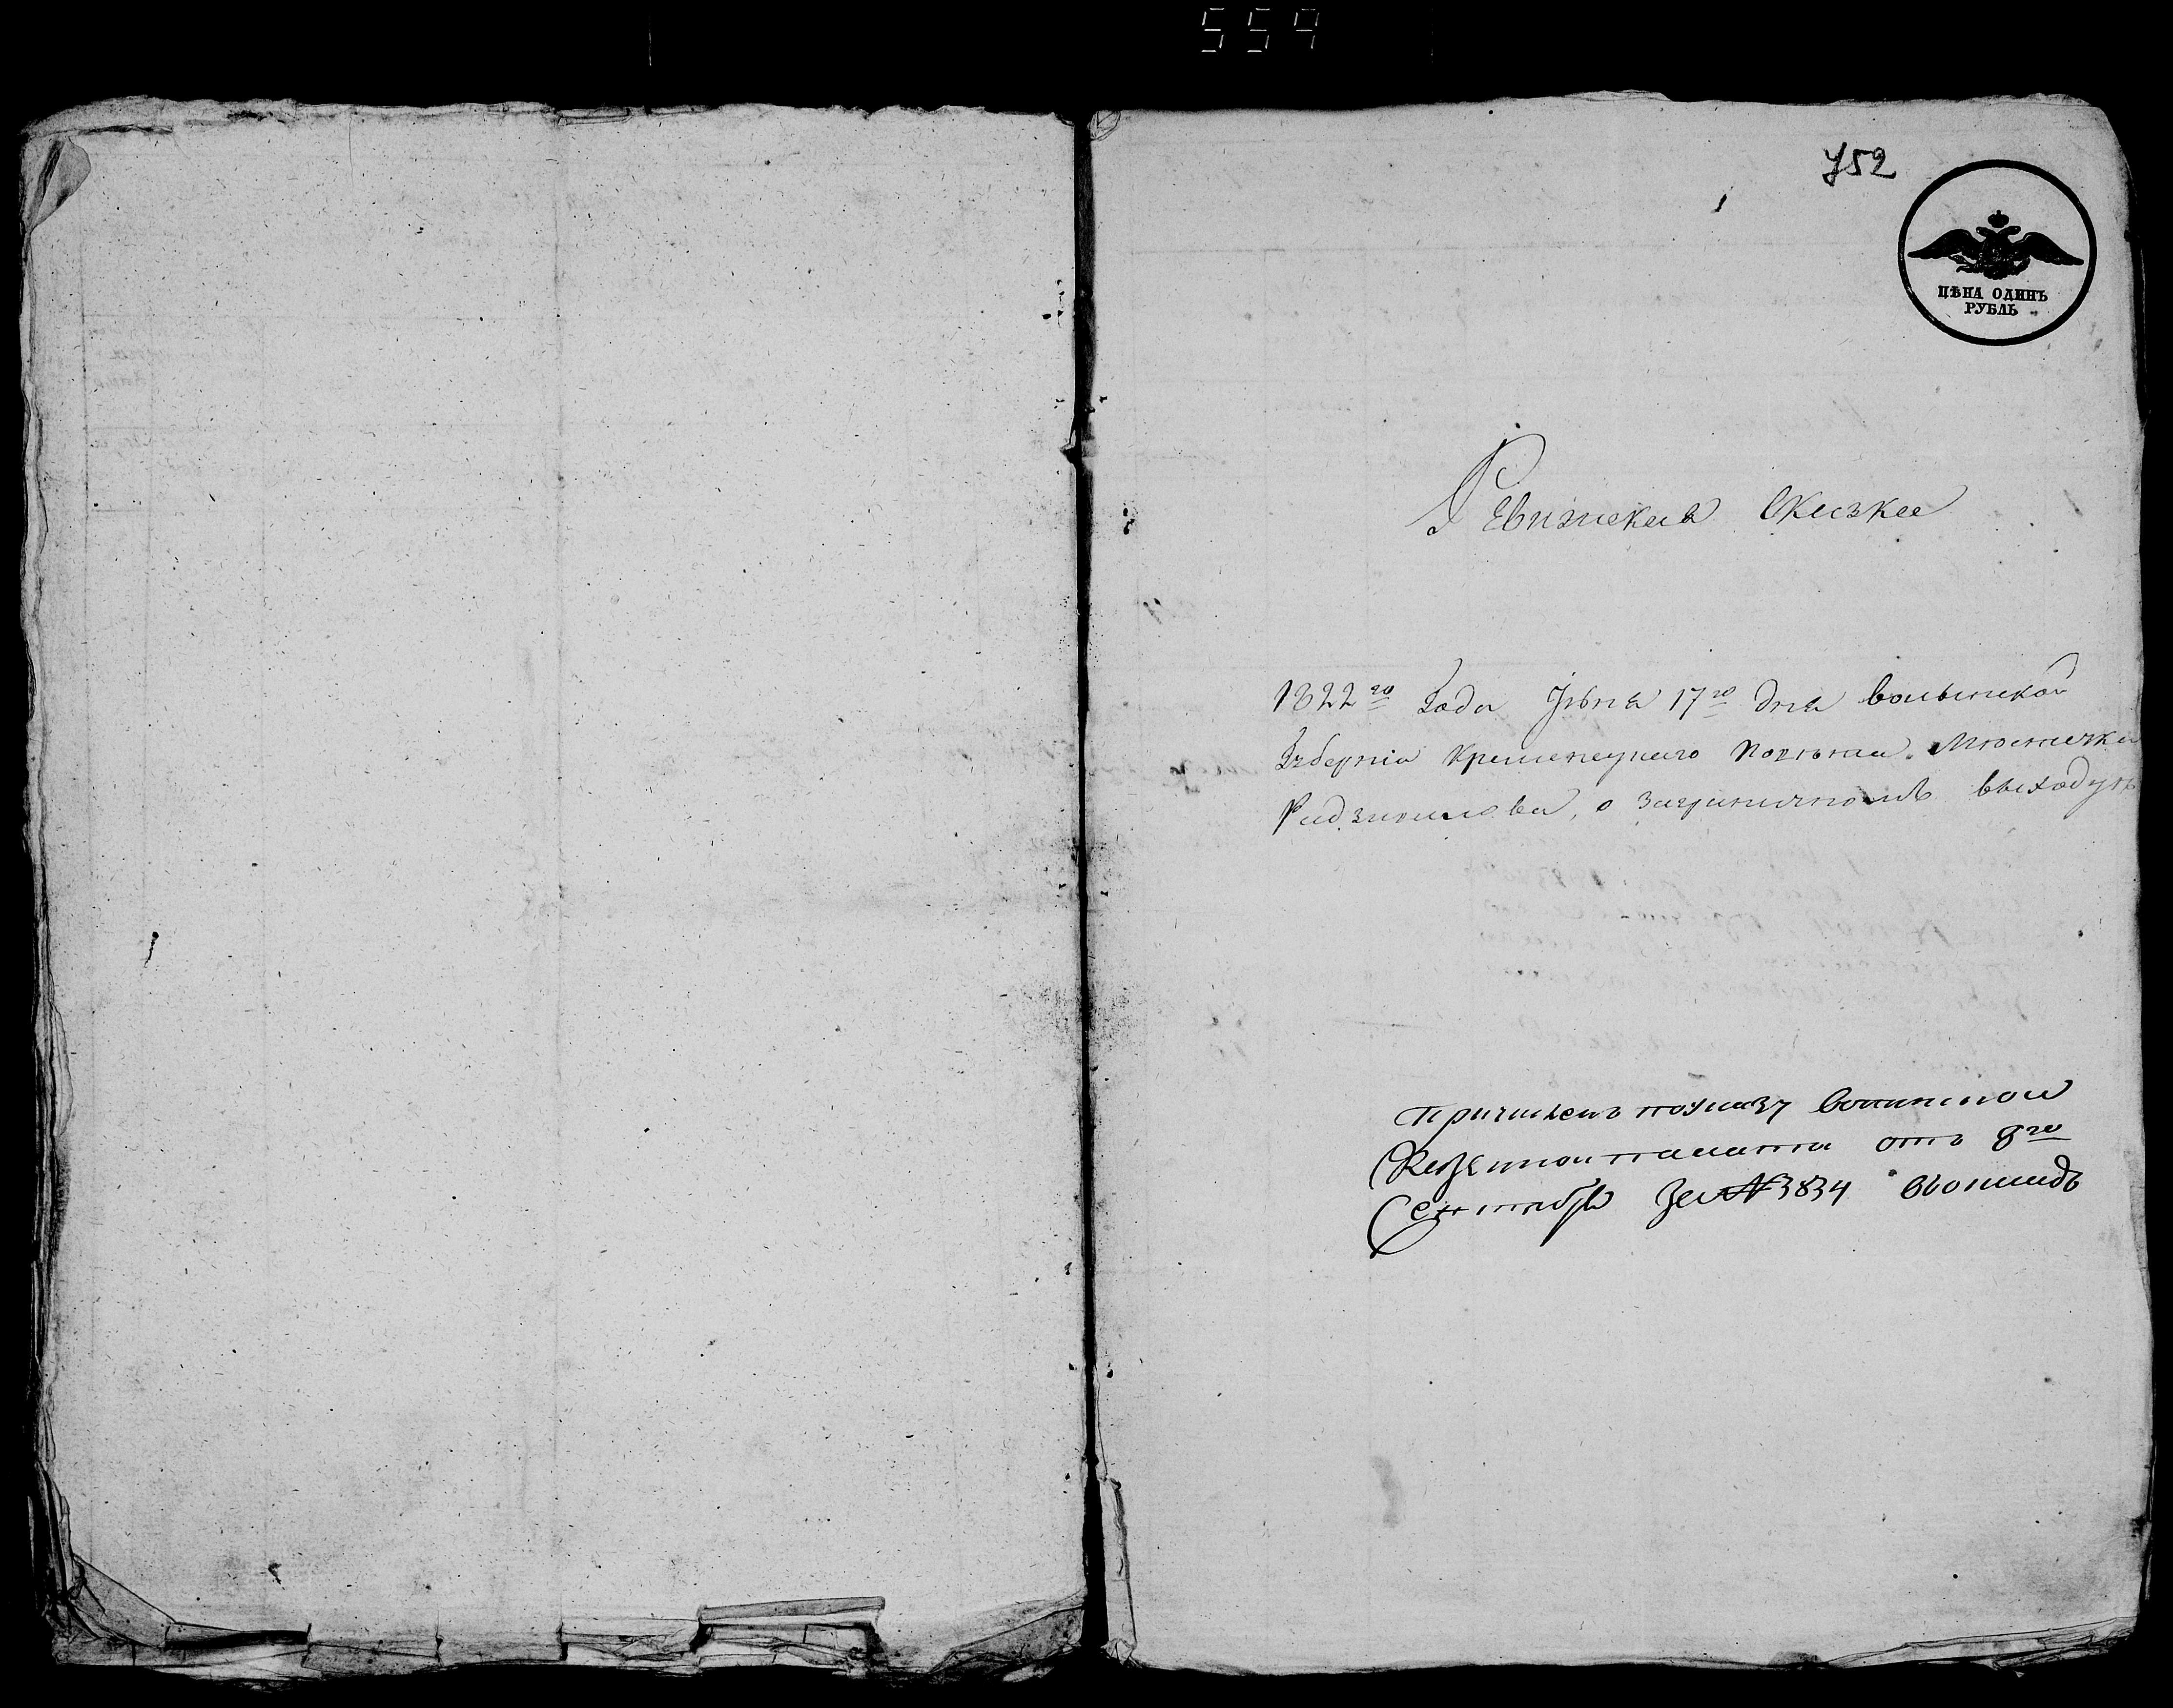 554
752
ЦѢНА ОДИНЪ
РУБЛЬ
Ревизская Сказка
1822го Года Іюня 17го дня волынской
Губерніи Кременецкаго Повѣта Мѣстечка
Радзивилова, о заграничномъ выходцѣ
причисленъ по указу волынской
Казенной палаты отъ 8го
Сентября За № 3834